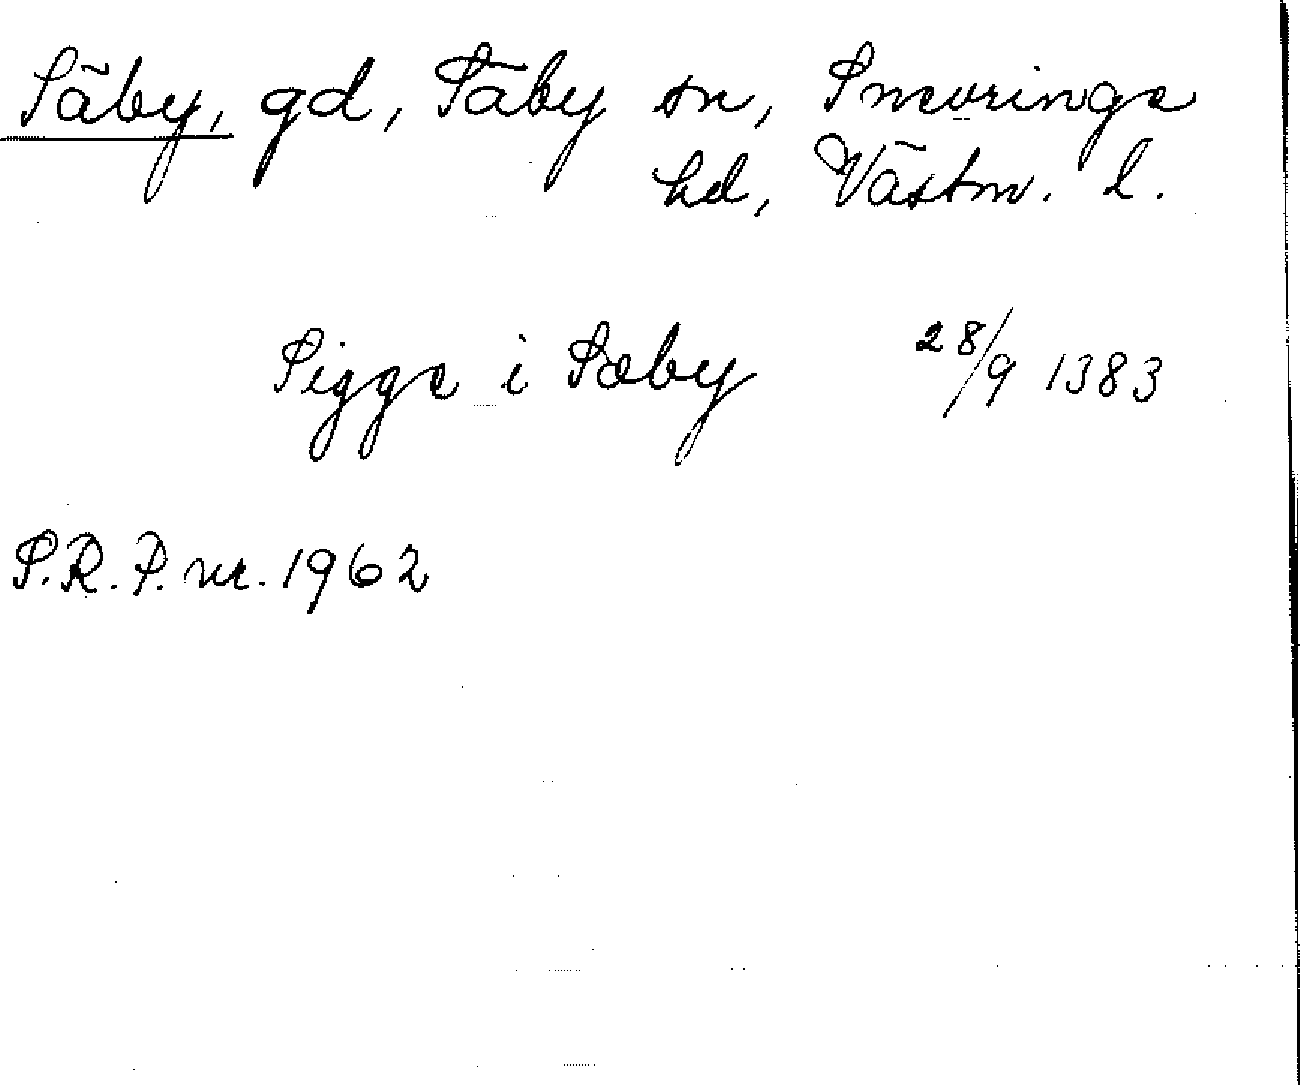 Säby, gd, Säby sn, Snevringe
hd, Västm. l.
Sigge i Sæby 28/9 1383
S.R.P. nr. 1962